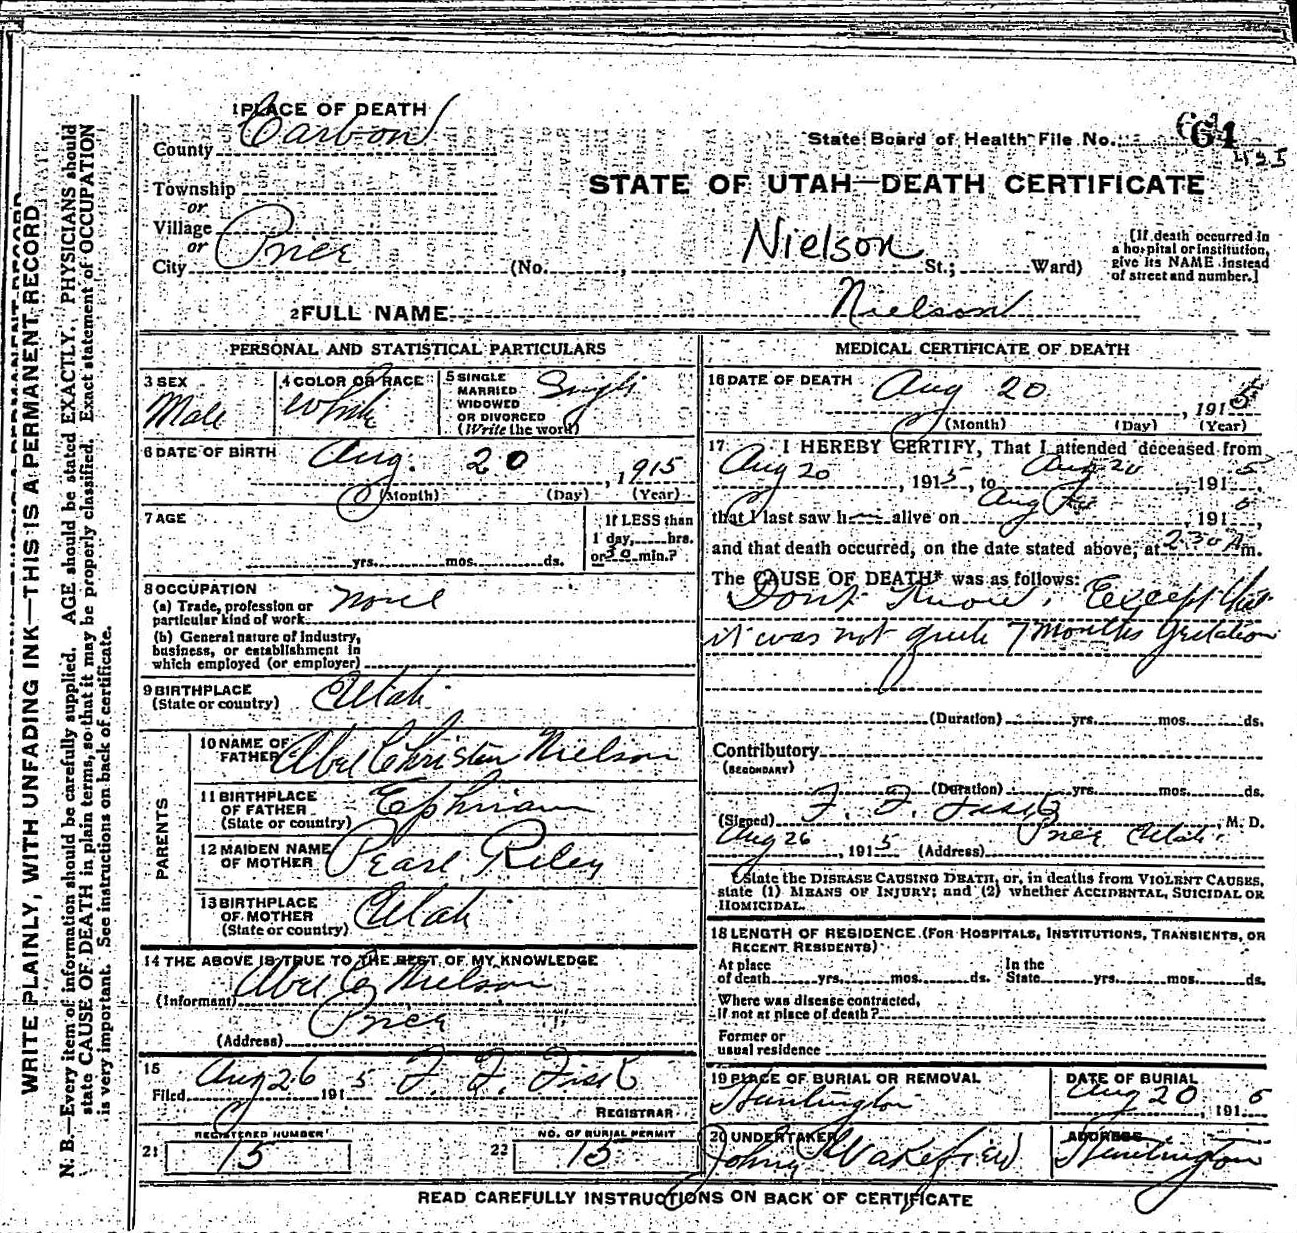 1 PLACE OF DEATH
County Carbon
State Board of Health File No. 661
425
STATE OF UTAH—DEATH CERTIFICATE
Township
or
Village
or
City Price (No. , Nielson St.; Ward)
[If death occurred in
a hospital or institution,
give its NAME instead
of street and number.]
2 FULL NAME Nielson
PERSONAL AND STATISTICAL PARTICULARS
3 SEX
Male
4 COLOR OR RACE
White
5 SINGLE
MARRIED
WIDOWED
OR DIVORCED
(Write the word)
Single
6 DATE OF BIRTH Aug. 20, 1915
(Month) (Day) (Year)
7 AGE
yrs. mos. ds.
If LESS than
1 day, hrs.
or 30 min.?
8 OCCUPATION
(a) Trade, profession or
particular kind of work none
(b) General nature of industry,
business, or establishment in
which employed (or employer)
9 BIRTHPLACE
(State or country) Utah
PARENTS
10 NAME OF
FATHER Abel Christen Nielson
11 BIRTHPLACE
OF FATHER
(State or country) Ephriam
12 MAIDEN NAME
OF MOTHER Pearl Riley
13 BIRTHPLACE
OF MOTHER
(State or country) Utah
14 THE ABOVE IS TRUE TO THE BEST OF MY KNOWLEDGE
(Informant) Abel C Nielson
(Address) Price
15
Filed Aug 26 191 5 F. F. Fisk
REGISTRAR
21 REGISTERED NUMBER
15
22 NO. OF BURIAL PERMIT
15
MEDICAL CERTIFICATE OF DEATH
16 DATE OF DEATH Aug 20, 1915
(Month) (Day) (Year)
17 I HEREBY CERTIFY, That I attended deceased from
Aug 20, 1915, to Aug 20, 1915,
that I last saw h alive on Aug 20, 1915,
and that death occurred, on the date stated above, at 2 30 A m.
The CAUSE OF DEATH* was as follows:
Dont Know, Except that
it was not quite 7 months Gestation
(Duration) yrs. mos. ds.
Contributory
(SECONDARY)
(Duration) yrs. mos. ds.
(Signed) F. F. Fisk, M. D.
Aug 26, 1915 (Address) Price Utah.
State the DISEASE CAUSING DEATH, or, in deaths from VIOLENT CAUSES,
state (1) MEANS OF INJURY; and (2) whether ACCIDENTAL, SUICIDAL OR
HOMICIDAL.
18 LENGTH OF RESIDENCE (FOR HOSPITALS, INSTITUTIONS, TRANSIENTS, OR
RECENT RESIDENTS)
At place
of death yrs. mos. ds.
In the
State yrs. mos. ds.
Where was disease contracted,
if not at place of death?
Former or
usual residence
19 PLACE OF BURIAL OR REMOVAL
Huntington
DATE OF BURIAL
Aug 20, 1915
20 UNDERTAKER
Johny Wakefield
ADDRESS
Huntington
READ CAREFULLY INSTRUCTIONS ON BACK OF CERTIFICATE
WRITE PLAINLY, WITH UNFADING INK—THIS IS A PERMANENT RECORD
N. B.—Every item of information should be carefully supplied. AGE should be stated EXACTLY. PHYSICIANS should
state CAUSE OF DEATH in plain terms, so that it may be properly classified. Exact statement of OCCUPATION
is very important. See instructions on back of certificate.